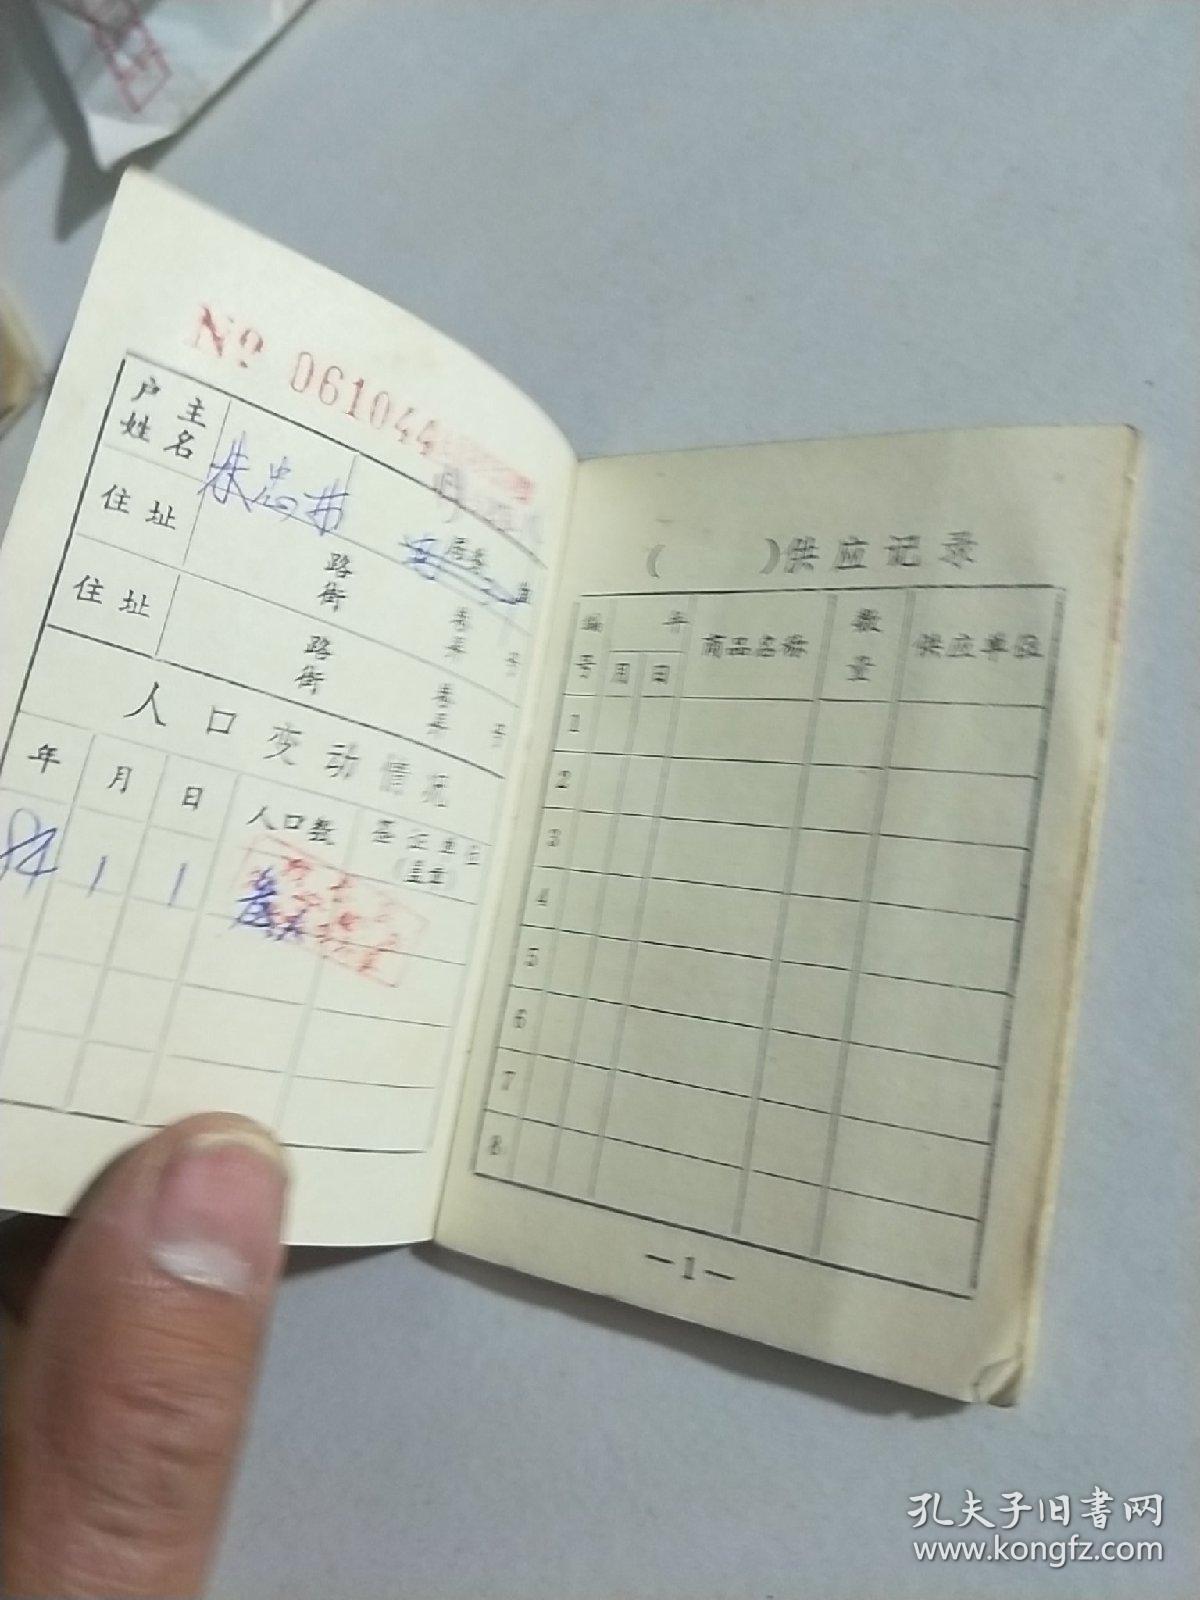 № 061044
户主姓名 朱忠
住址 路街 巷弄 号
住址 路街 巷弄 号
人口变动情况
年 月 日 人口数 签证单位(盖章)
84 1 1
( )供应记录
编号 年 月 日 商品名称 数量 供应单位
1
2
3
4
5
6
7
8
—1—
孔夫子旧书网
www.kongfz.com